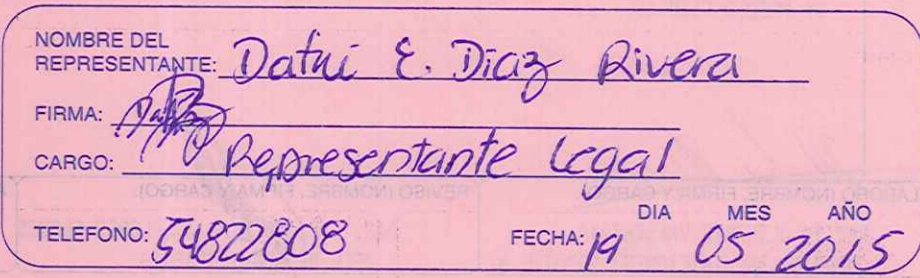 NOMBRE DEL
REPRESENTANTE: Datui E. Diaz Rivera
FIRMA:
CARGO: Representante Legal
DIA MES AÑO
TELEFONO: 54822808 FECHA: 19 05 2015